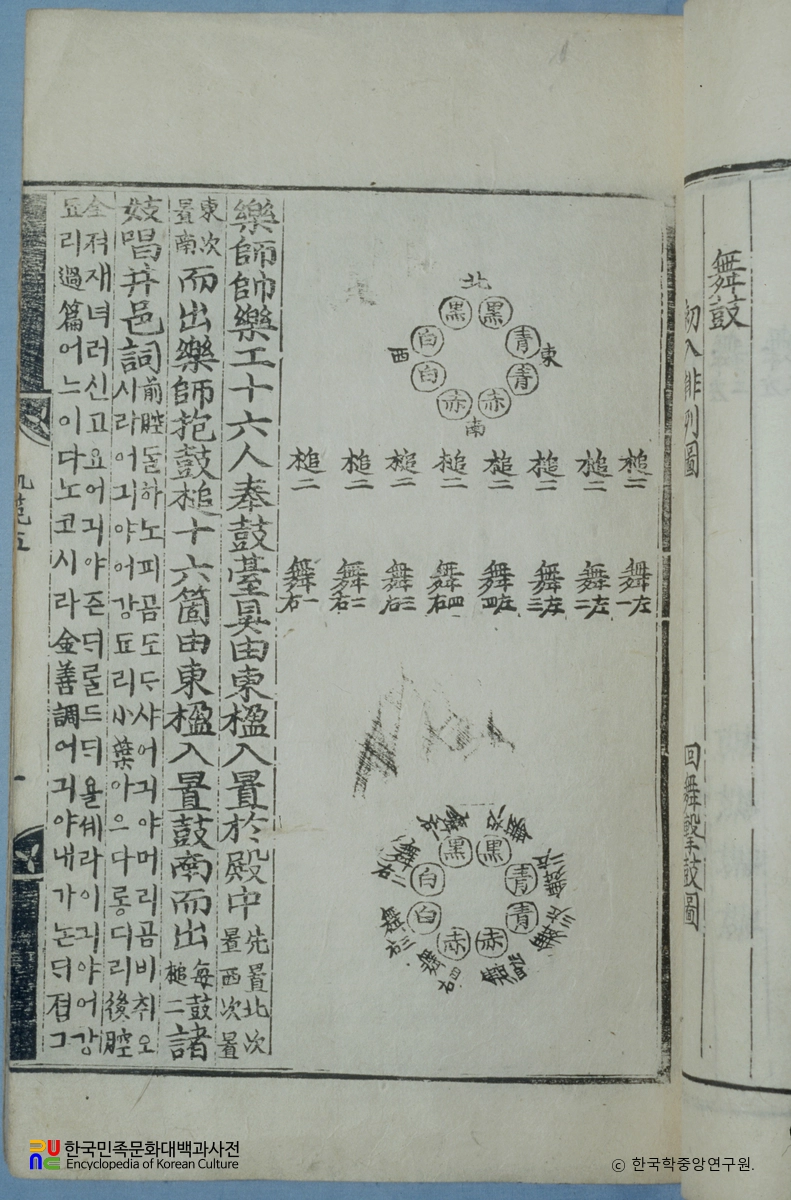 舞鼓
初入排列圖
回舞擊鼓圖
北
黑 黑
白 青
西 東
白 青
赤 赤
南
槌二 槌二 槌二 槌二 槌二 槌二 槌二 槌二
舞左一 舞左二 舞左三 舞左四 舞右四 舞右三 舞右二 舞右一
黑 黑
白 青
白 青
赤 赤
樂師帥樂工十六人奉鼓臺具由東楹入置於殿中先置北次置西次置
東次置南而出樂師抱鼓槌十六箇由東楹入置鼓南而出每鼓槌二諸
妓唱井邑詞前腔ᄃᆞᆯ하노피곰도ᄃᆞ샤어긔야머리곰비취오
시라어긔야어강됴리小葉아으다롱디리後腔
全져재녀러신고요어긔야즌ᄃᆡᄅᆞᆯ드ᄃᆡ욜셰라어긔야어강
됴리過篇어느이다노코시라金善調어긔야내가논ᄃᆡ졈그
한국민족문화대백과사전
Encyclopedia of Korean Culture
ⓒ 한국학중앙연구원.